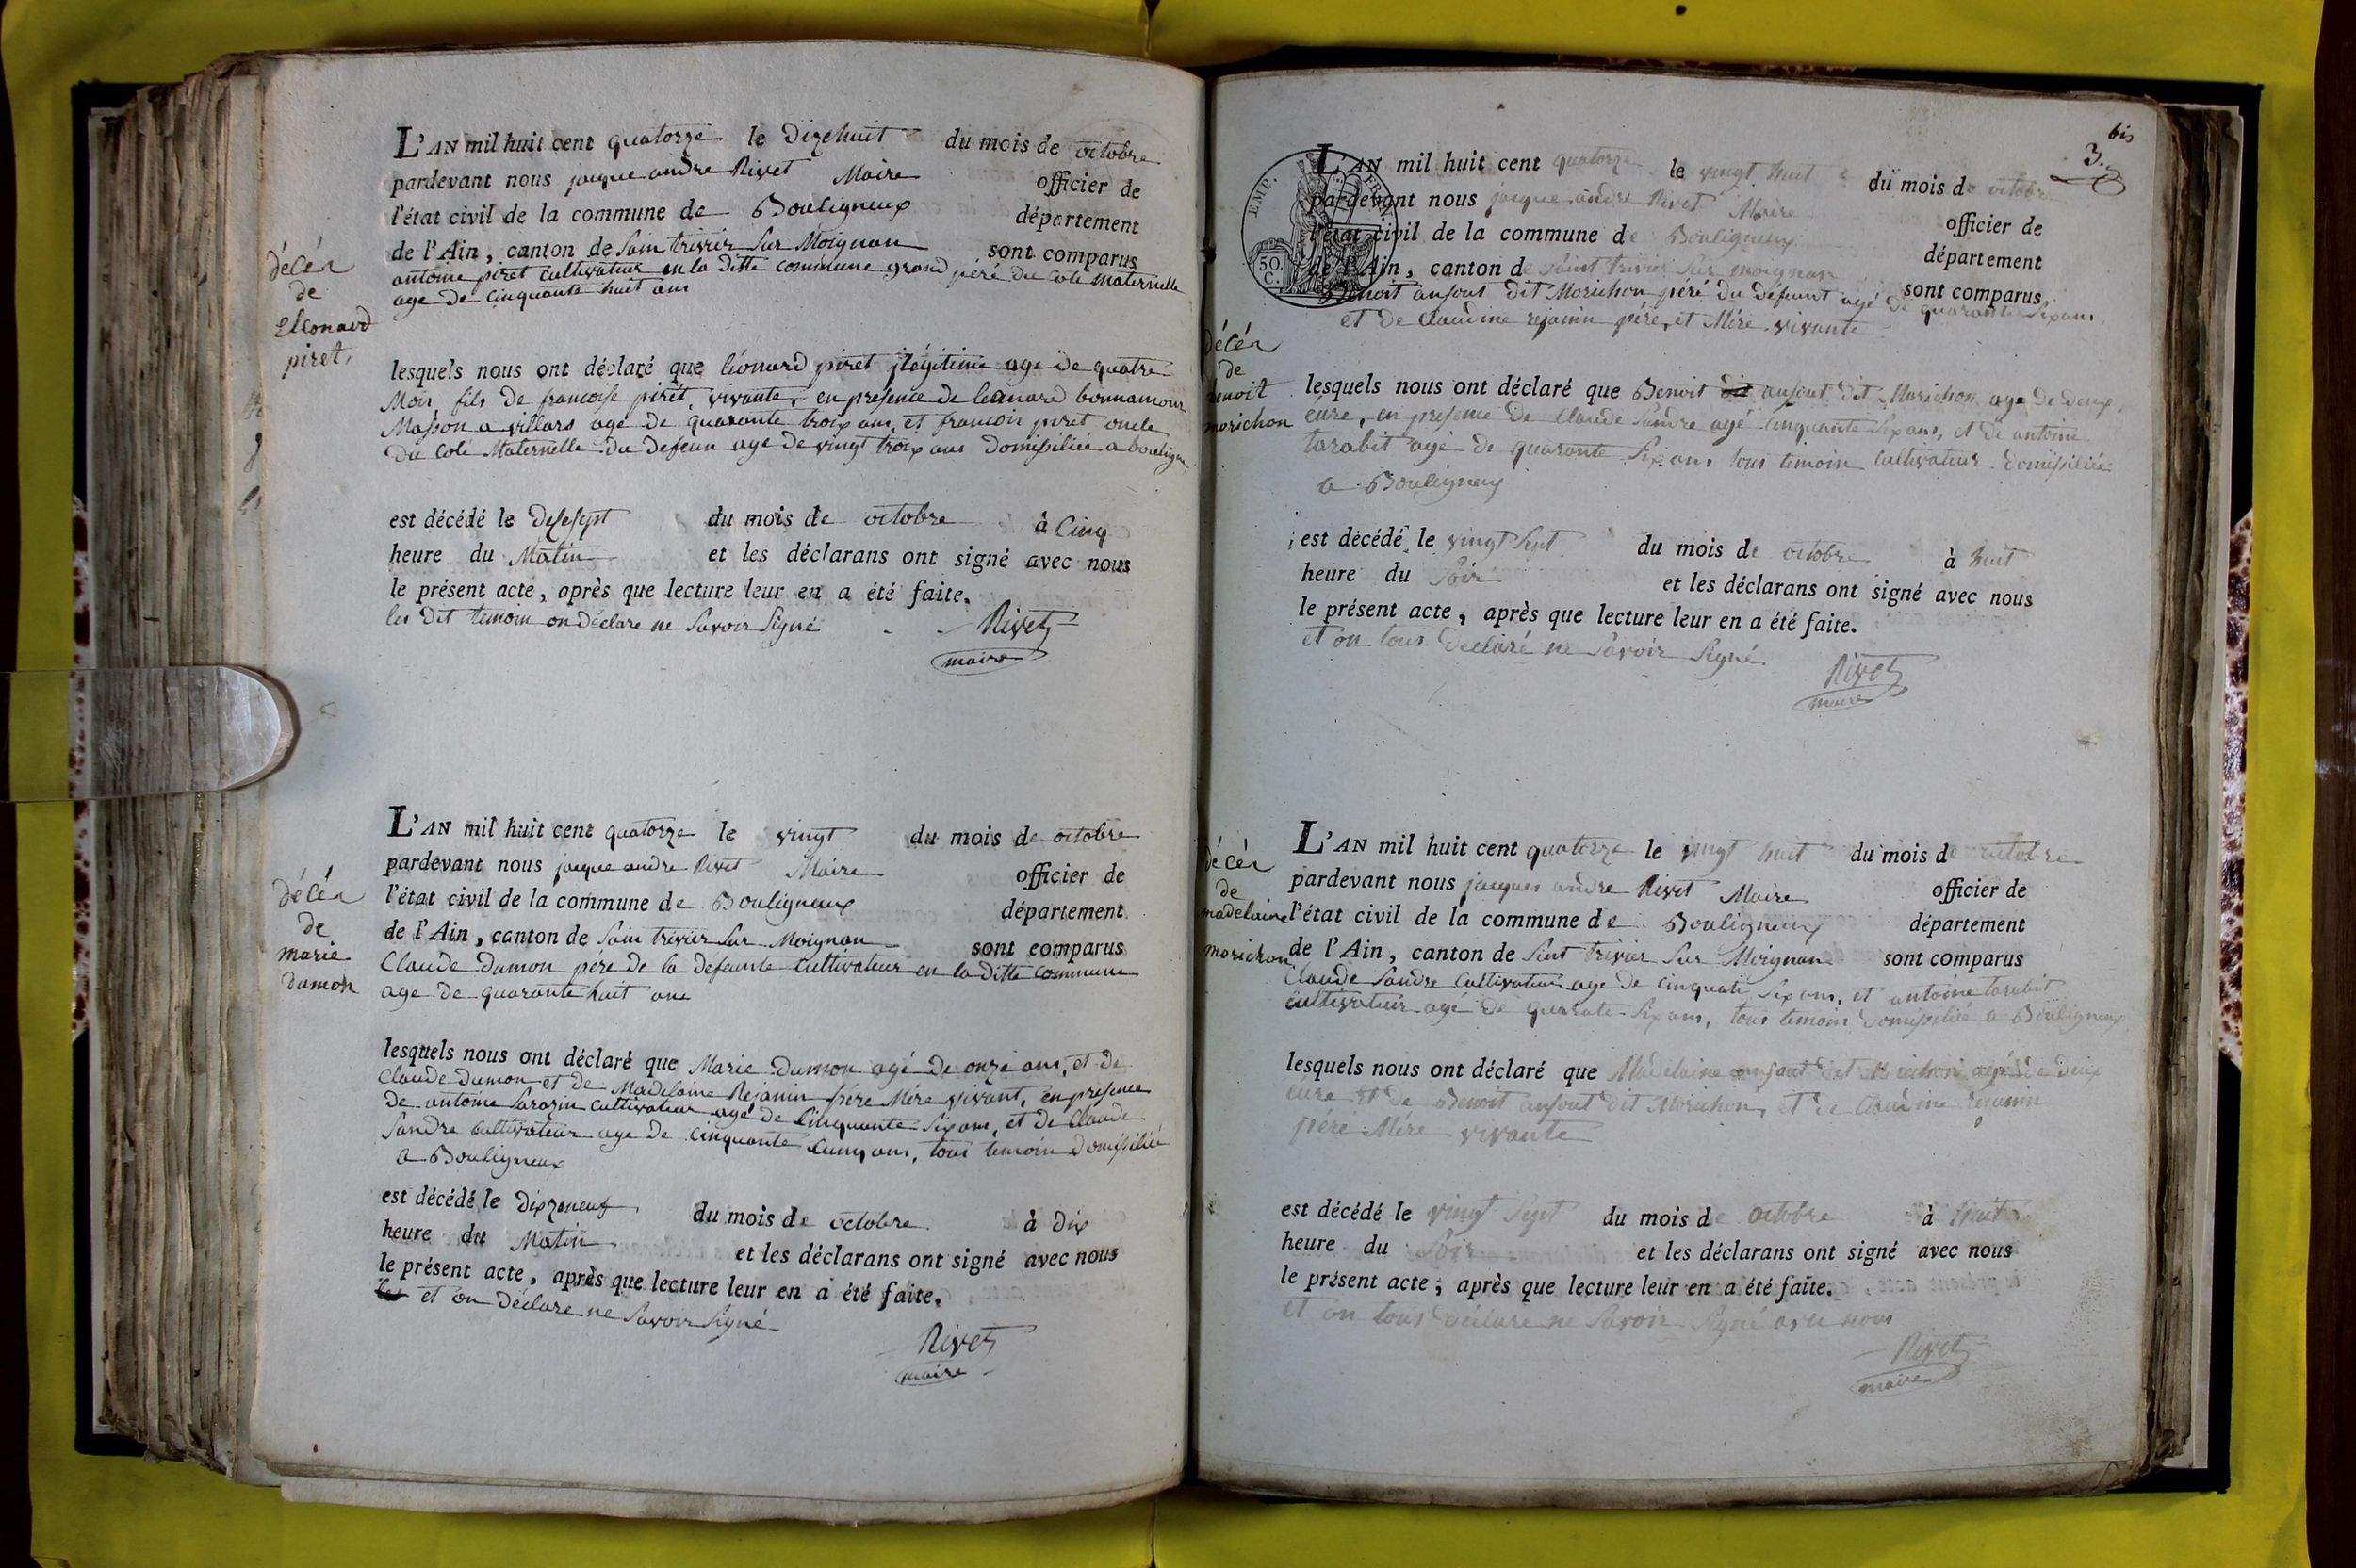 décéa
de
Elléonard
piret
L'AN mil huit cent quatorze le dizehuit du mois de octobre
pardevant nous jacque andre Rivet Maire officier de
l'état civil de la commune de Bouligneux département
de l'Ain, canton de Sain trivier Sur Moignan sont comparus
antoine piret cultivateur en la ditte commune grand père du Coté maternelle
age de cinquante huit ans
lesquels nous ont déclaré que léonard piret jlégitime age de quatre
Mois, fils de francoise pirét, vivante, en présence de leonard bonnamour
Masson a villars agé de quarante troix ans, et francois piret oncle
du Coté Maternelle du defeun age de vingt troix ans domisiliée a bouligne
est décédé le desesept du mois de octobre à Cinq
heure du Matin et les déclarans ont signé avec nous
le présent acte, après que lecture leur en a été faite.
les dit temoin on déclare ne Savoir Signé
Rivet
maire
décéa
de
marie
dumon
L'AN mil huit cent quatorze le vingt du mois de octobre
pardevant nous jacque andre Rivet Maire officier de
l'état civil de la commune de Bouligneux département
de l'Ain, canton de Sain trivier Sur Moignan sont comparus
Claude dumon père de la defeunte Cultivateur en la ditte Commune
age de quarante huit ans
lesquels nous ont déclaré que Marie dumon agé de onze ans, et de
Claude dumon et de Madelaine Rejanin père Mère vivant, en présence
de antoine Sarazin Cultivateur agé de Cinquante Six ans, et de Claude
Sandre Cultivateur age de cinquante Cinq ans, tous temoin domisiliée
a Bouligneux
est décédé le dixzeneuf du mois de octobre à dix
heure du Matin et les déclarans ont signé avec nous
le présent acte, après que lecture leur en a été faite.
et on déclare ne Savoir Signé
Rivet
maire
bis
3.
EMP. FRAN.
50.
C.
décéa
de
benoit
morichon
L'AN mil huit cent quatorze le vingt huit du mois de octobre
pardevant nous jacque andre Rivet Maire officier de
l'état civil de la commune de Bouligneux département
de l'Ain, canton de Saint trivier Sur moignan sont comparus
Benoit ansout dit Morichon père du défeunt agé de quarante Six ans,
et de Claudine rejanin père, et Mère vivante
lesquels nous ont déclaré que Benoit dit ansout dit Morichon age de deux
eure, en presence de Claude Sandre agé Cinquante Six ans, et de antoine
tarabit agé de quarante Six ans tous temoin Cultivateur domisiliée
a Bouligneux
est décédé le vingt Sept du mois de octobre à huit
heure du Soir et les déclarans ont signé avec nous
le présent acte, après que lecture leur en a été faite.
et on tous declaré ne Savoir Signé
Rivet
maire
décéa
de
madelaine
morichon
L'AN mil huit cent quatorze le vingt huit du mois de octobre
pardevant nous jacques andre Rivet Maire officier de
l'état civil de la commune de Bouligneux département
de l'Ain, canton de Sint trivier Sur Moignan sont comparus
Claude Sandre Cultivateur age de cinquate Six ans, et antoine tarabit
cultivateur agé de quarate Six ans, tous temoin domisiliée a Bouligneux
lesquels nous ont déclaré que Madelaine ansout dit Morichon agée de deux
eure et de Benoit ansout dit Morichon, et de Claudine rejanin
père Mère vivante
est décédé le vingt Sept du mois de octobre à huit
heure du Soir et les déclarans ont signé avec nous
le présent acte, après que lecture leur en a été faite.
et on tous déclare ne Savoir Signé avec nous
Rivet
maire